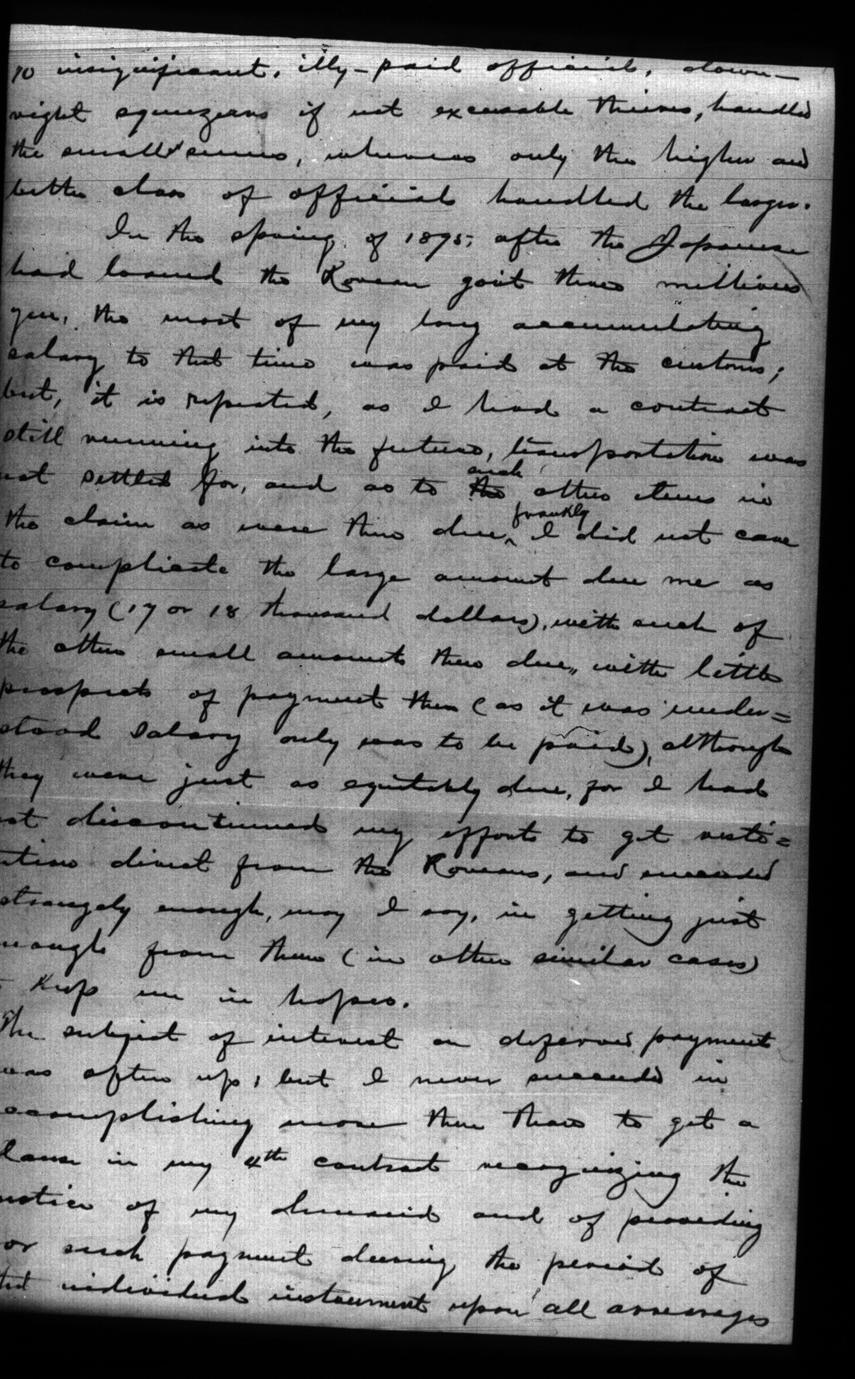 to insignificant, illy-paid officials, down-
right squeezers if not excusable thieves, handled
the small sums, whereas only the higher and
better class of officials handled the larger.
In the spring of 1895, after the Japanese
had loaned the Korean gov't three millions
yen, the most of my long accumulating
salary to that time was paid at the customs;
but, it is repeated, as I had a contract
still running into the future, transportation was
not settled for, and as to the such other items in
the claim as were then due, frankly I did not care
to complicate the large amount due me as
salary (17 or 18 thousand dollars), with such of
the other small amounts then due, with little
prospects of payment then (as it was under=
stood salary only was to be paid), although
they were just as equitably due, for I had
not discontinued my efforts to get resti=
ution direct from the Koreans, and succeeded
strangely enough, may I say, in getting just
nough from them (in other similar cases)
keep me in hopes.
The subject of interest on deferred payment
was often up, but I never succeeded in
ccomplishing more than this to get a
lause in my 4th contract recognizing the
justice of my demand and of providing
or such payment during the period of
that individual instrument upon all arrearages